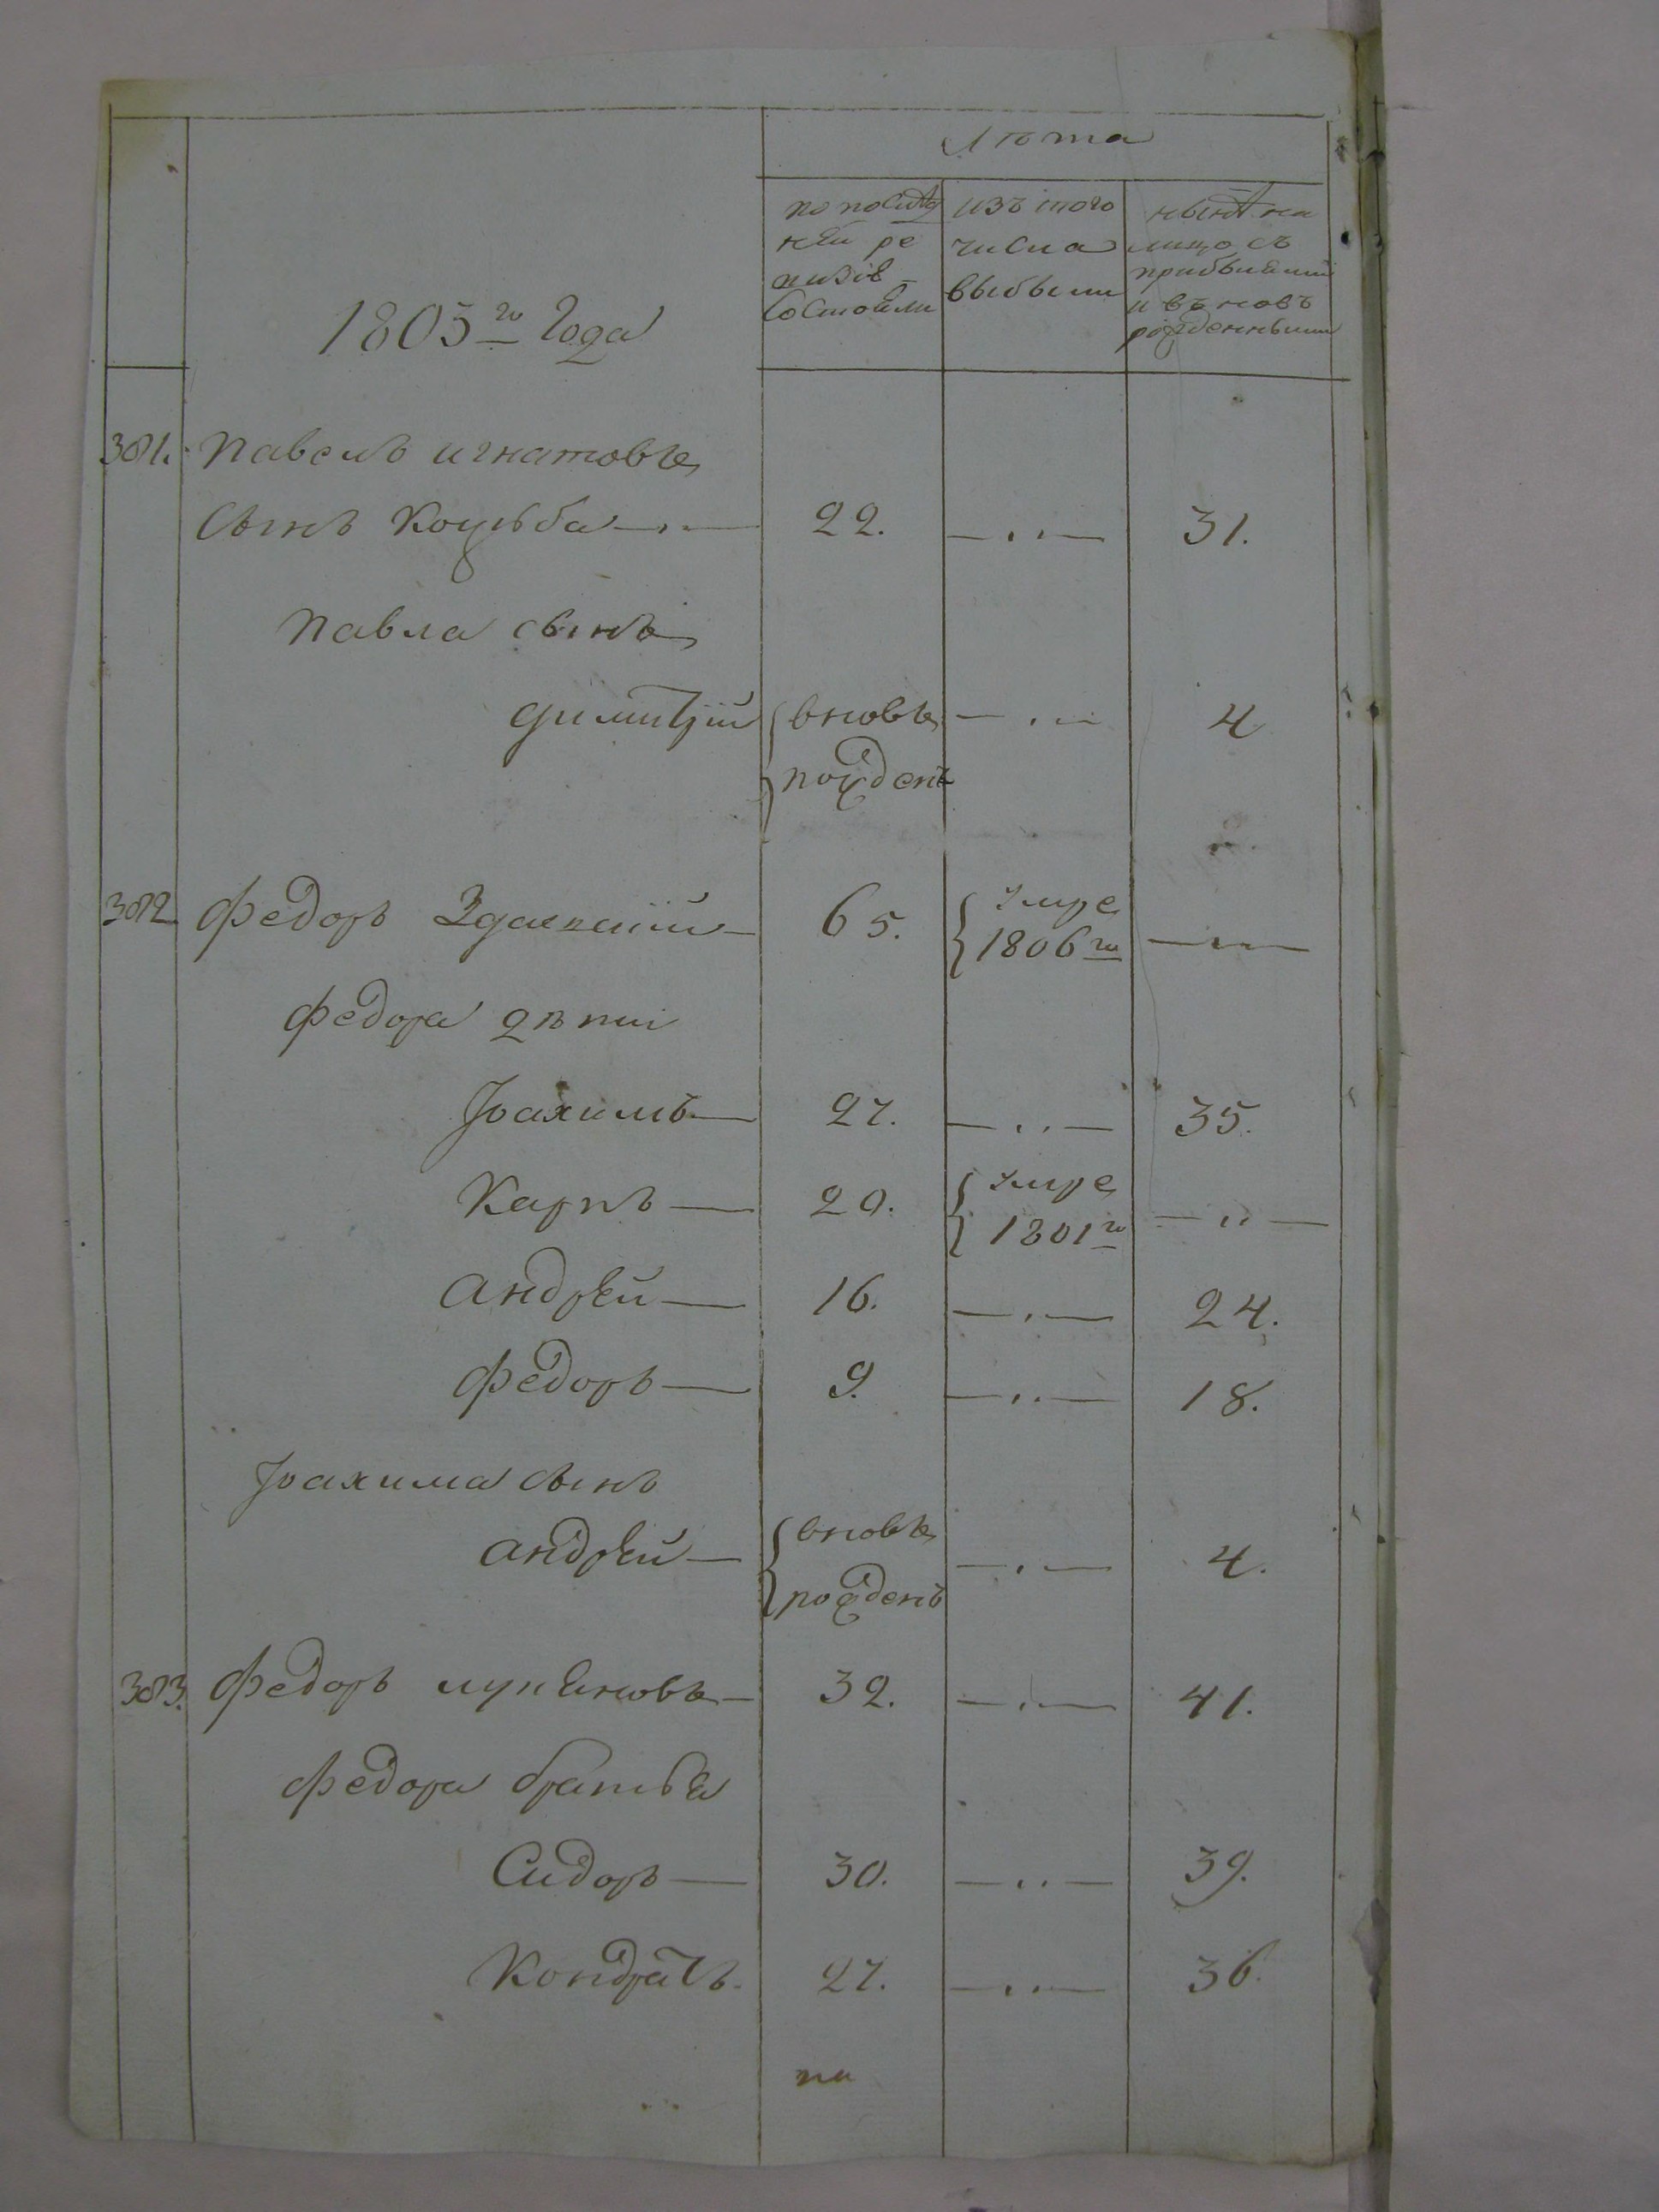 Лѣта
по послѣд
ней ре
визіи
состояли
изъ того
числа
выбыли
нынѣ на
лицо съ
прибылыми
и въ новъ
рожденными
1805го Года
381. Павелъ игнатовъ
Сынъ Коцюба 22. 31.
Павла сынъ
Димитрій вновь 4
рожденъ
382. Федоръ 65. умре
1806го
Федора дѣти
Іоахимъ 27. 35.
Карпъ 20. умре
1801го
Андрей 16. 24.
Федоръ 9. 18.
Іоахима сынъ
Андрей вновь 4.
рожденъ
383. Федоръ лукяновъ 32. 41.
Федора братья
Сидоръ 30. 39.
Кондратъ 27. 36.